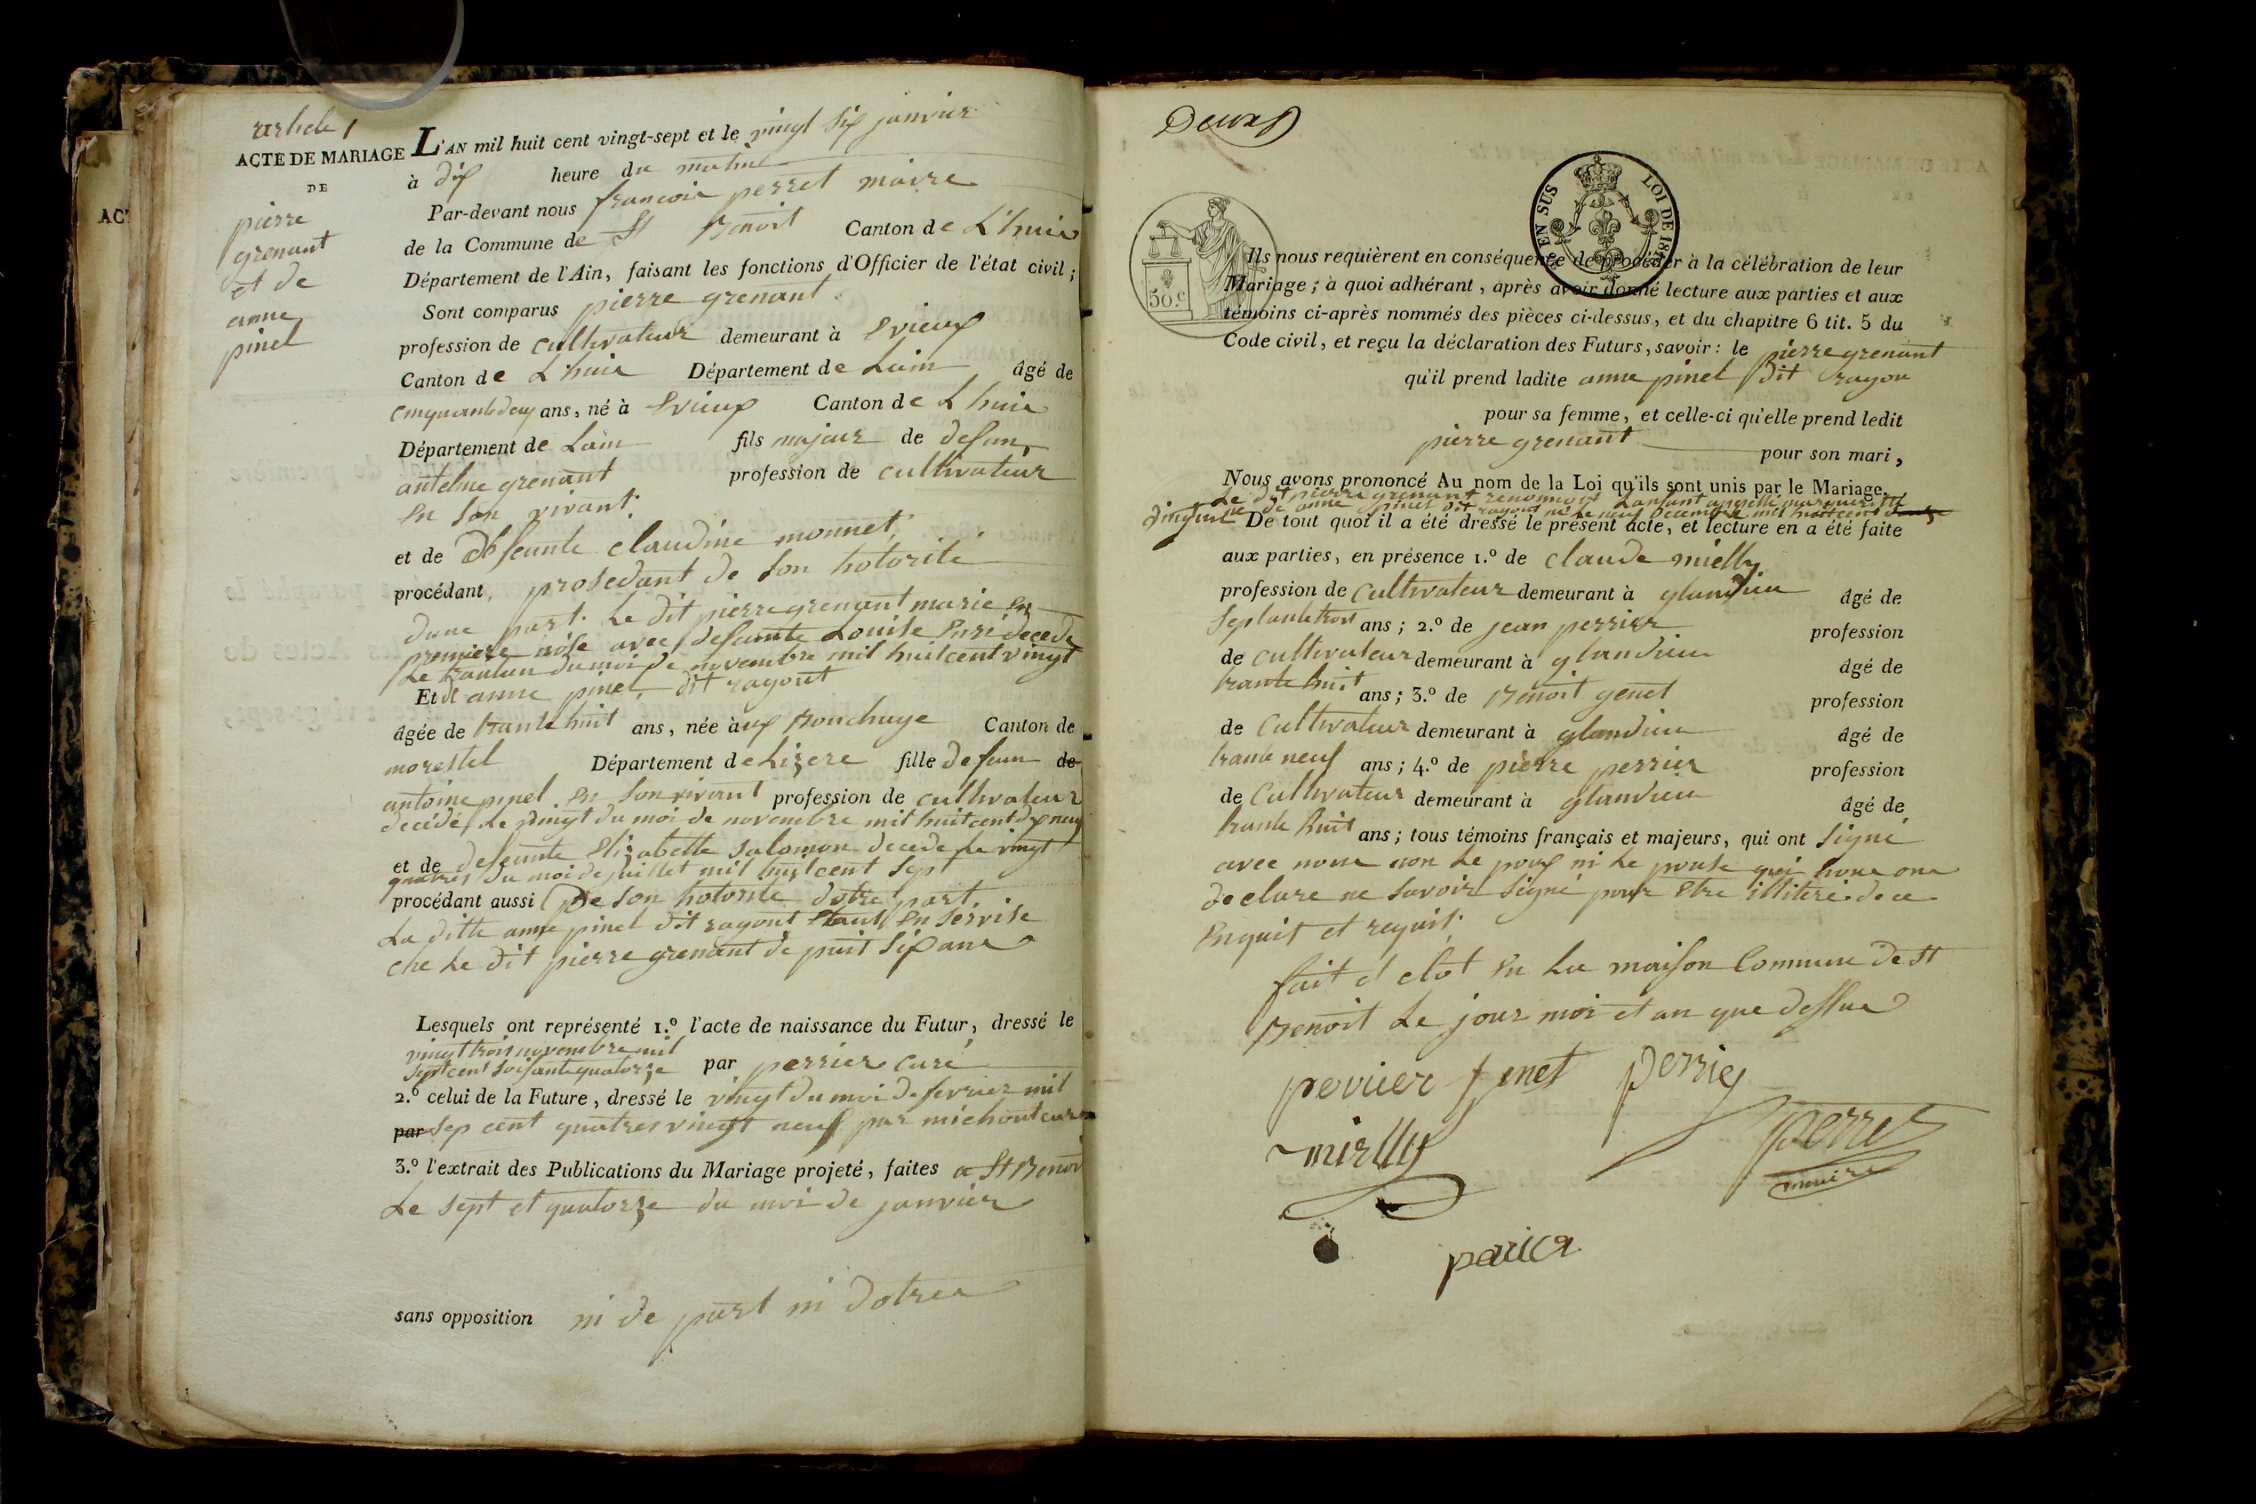 article 1
ACTE DE MARIAGE
DE
pierre
grenant
et de
anne
pinel
ACT
L'AN mil huit cent vingt-sept et le vingt six janvier
à dix heure du matin
Par-devant nous francois perret maire
de la Commune de St Benoit Canton de L'huis
Département de l'Ain, faisant les fonctions d'Officier de l'état civil;
Sont comparus pierre grenant
profession de cultivateur demeurant à Evieux
Canton de L huis Département de Lain âgé de
cinquante deux ans, né à Evieux Canton de L huis
Département de Lain fils majeur de defun
antelme grenant profession de cultivateur
en son vivant.
et de defeunte claudine monnet,
procédant, prosedant de son hotorité
dune part. Le dit pierre grenant marie en
premiere nose avec defeunte Louise decede
le du moi de novembre mil huit cent vingt
Et de anne pinel dit rayout
âgée de trante huit ans, née aux Bouchuge Canton de
morestel Département de Lizere fille defeun de
antoine pinel en son vivant profession de cultivateur
decédé le vingt du moi de novembre mil huit cent dix neuf
et de defeunte Elizabette Salomon decede le vingt
quatres du moi de juillet mil huit cent sept
procédant aussi De son hotorité dotre part.
La ditte anne pinel dit rayout Etant en servise
che le dit pierre grenant de puit six ans
Lesquels ont représenté 1.º l'acte de naissance du Futur, dressé le
vingt trois novembre mil
sept cent soisante quatorze par perrier curé
2.º celui de la Future, dressé le vingt du moi de fevrier mil
par sep cent quatres vingt neuf par michont cure
3.º l'extrait des Publications du Mariage projeté, faites a St Benoi
Le sept et quatorze du moi de janvier
sans opposition ni de part ni dotres
Deux
EN SUS LOI DE 18
50.c
Ils nous requièrent en conséquence de procéder à la célébration de leur
Mariage; à quoi adhérant, après avoir donné lecture aux parties et aux
témoins ci-après nommés des pièces ci-dessus, et du chapitre 6 tit. 5 du
Code civil, et reçu la déclaration des Futurs, savoir: le pierre grenant
qu'il prend ladite anne pinel dit rayou
pour sa femme, et celle-ci qu'elle prend ledit
pierre grenant pour son mari,
Nous avons prononcé Au nom de la Loi qu'ils sont unis par le Mariage.
Le dit pierre grenant renonnoit Lanfant appellé marguerite
ne de anne pinel dit rayout né le neuf decembre mil huit cent
De tout quoi il a été dressé le présent acte, et lecture en a été faite
aux parties, en présence 1.º de claude mielly
profession de cultivateur demeurant à glandieu âgé de
septante trois ans; 2.º de jean perrier profession
de cultivateur demeurant à glandieu âgé de
trante huit ans; 3.º de Benoit genet profession
de cultivateur demeurant à glandieu âgé de
trante neuf ans; 4.º de pierre perrier profession
de cultivateur demeurant à glandieu âgé de
trante huit ans; tous témoins français et majeurs, qui ont signé
avec nous non le poux ni le pouse qui nous ons
declare ne savoir signé pour Etre illiteré de ce
enquit et requit.
fait et clot en La maison Commune de St
Benoit Le jour moi et an que dessus
perrier genet perrier
mielly perret
maire